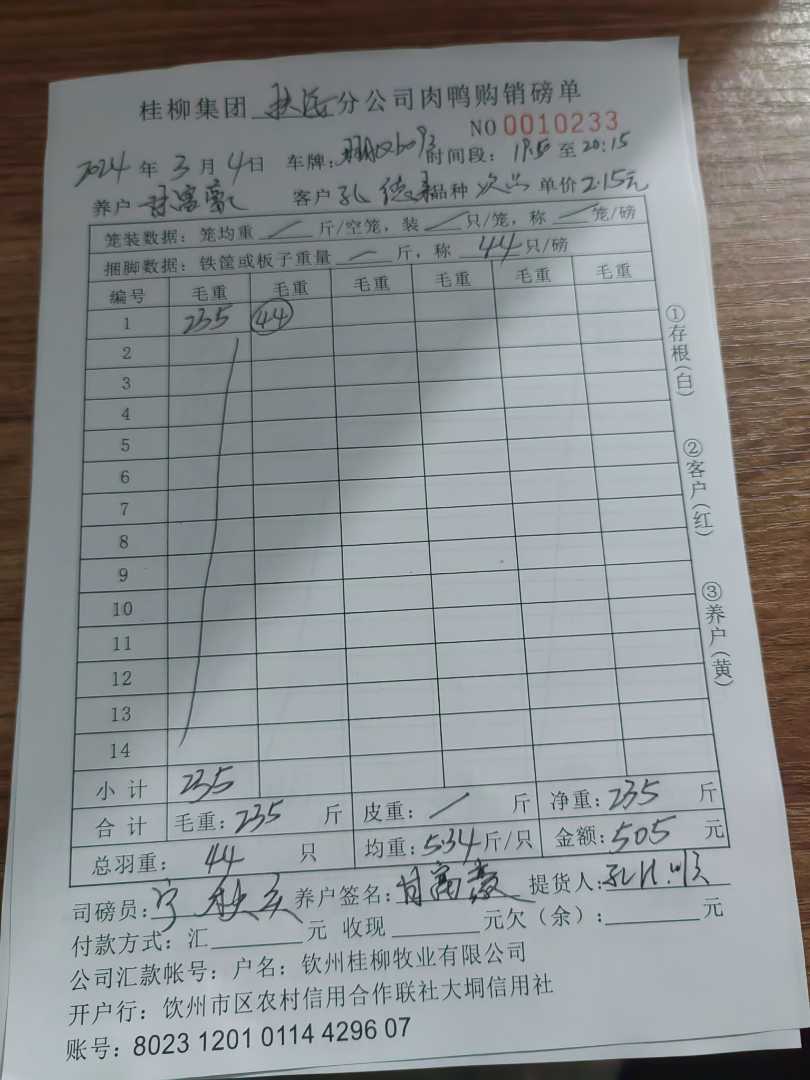 桂柳集团 分公司肉鸭购销磅单
NO 0010233
2024 年 3 月 4 日 车牌： 时间段： 至 20:15
养户 客户 孔 德 品种 次品 单价 2.15元
笼装数据：笼均重 / 斤/空笼，装 / 只/笼，称 / 笼/磅
捆脚数据：铁筐或板子重量 / 斤，称 44 只/磅
编号 毛重 毛重 毛重 毛重 毛重 毛重
1 235 44
2
3
4
5
6
7
8
9
10
11
12
13
14
小 计 235
合 计 毛重：235 斤 皮重： / 斤 净重：235 斤
总羽重： 44 只 均重：5.34 斤/只 金额：505 元
司磅员： 养户签名： 提货人：
付款方式：汇 元 收现 元欠（余）： 元
公司汇款帐号：户名：钦州桂柳牧业有限公司
开户行：饮州市区农村信用合作联社大垌信用社
账号：8023 1201 0114 4296 07
①存根（白）
②客户（红）
③养户（黄）